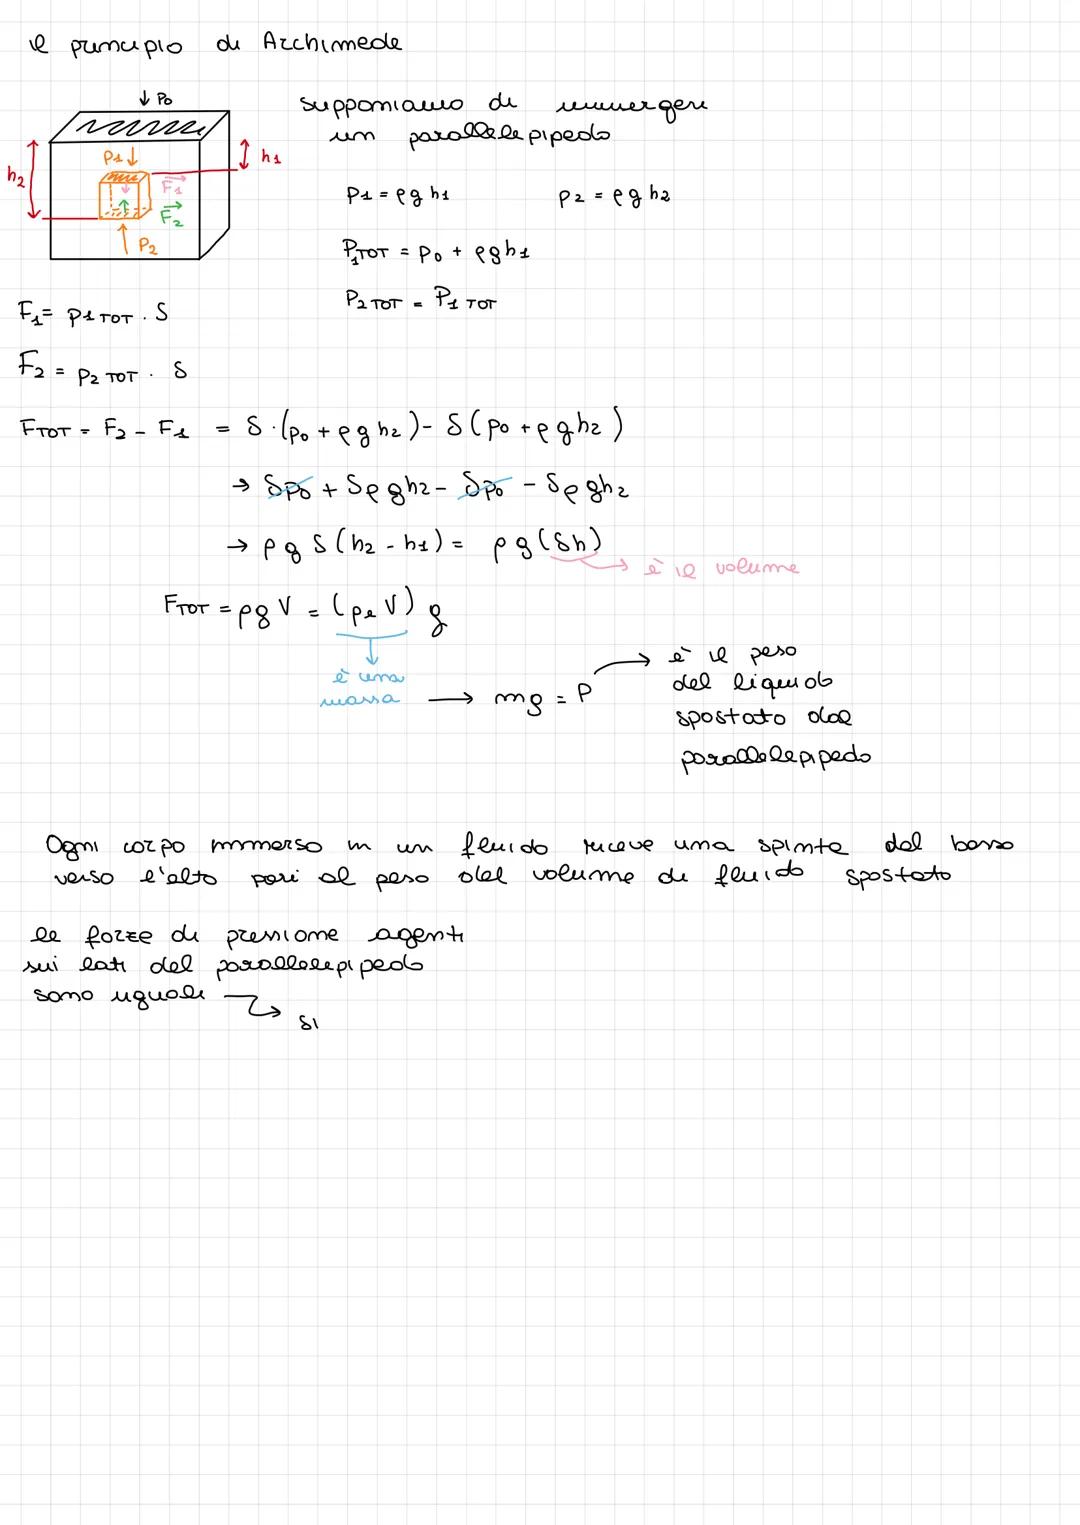 il principio di Archimede
↓ P0
supponiamo di immergere
un parallelepipedo
P1 ↓
h1
h2
F1
F2
P2
P1 = ρgh1
P2 = ρgh2
P1TOT = P0 + ρgh1
P2TOT = P1TOT
F1 = P1TOT · S
F2 = P2TOT · S
FTOT = F2 - F1 = S·(P0 + ρgh2) - S(P0 + ρgh2)
→ SP0 + Sρgh2 - SP0 - Sρgh2
→ ρgS(h2 - h1) = ρg(Sh)
→ è il volume
FTOT = ρgV = (ρeV)g
è una
massa → mg = P
→ è il peso
del liquido
spostato dal
parallelepipedo
Ogni corpo immerso in un fluido riceve una spinta dal basso
verso l'alto pari al peso del volume di fluido spostato
le forze di pressione agenti
sui lati del parallelepipedo
sono uguali →
SI